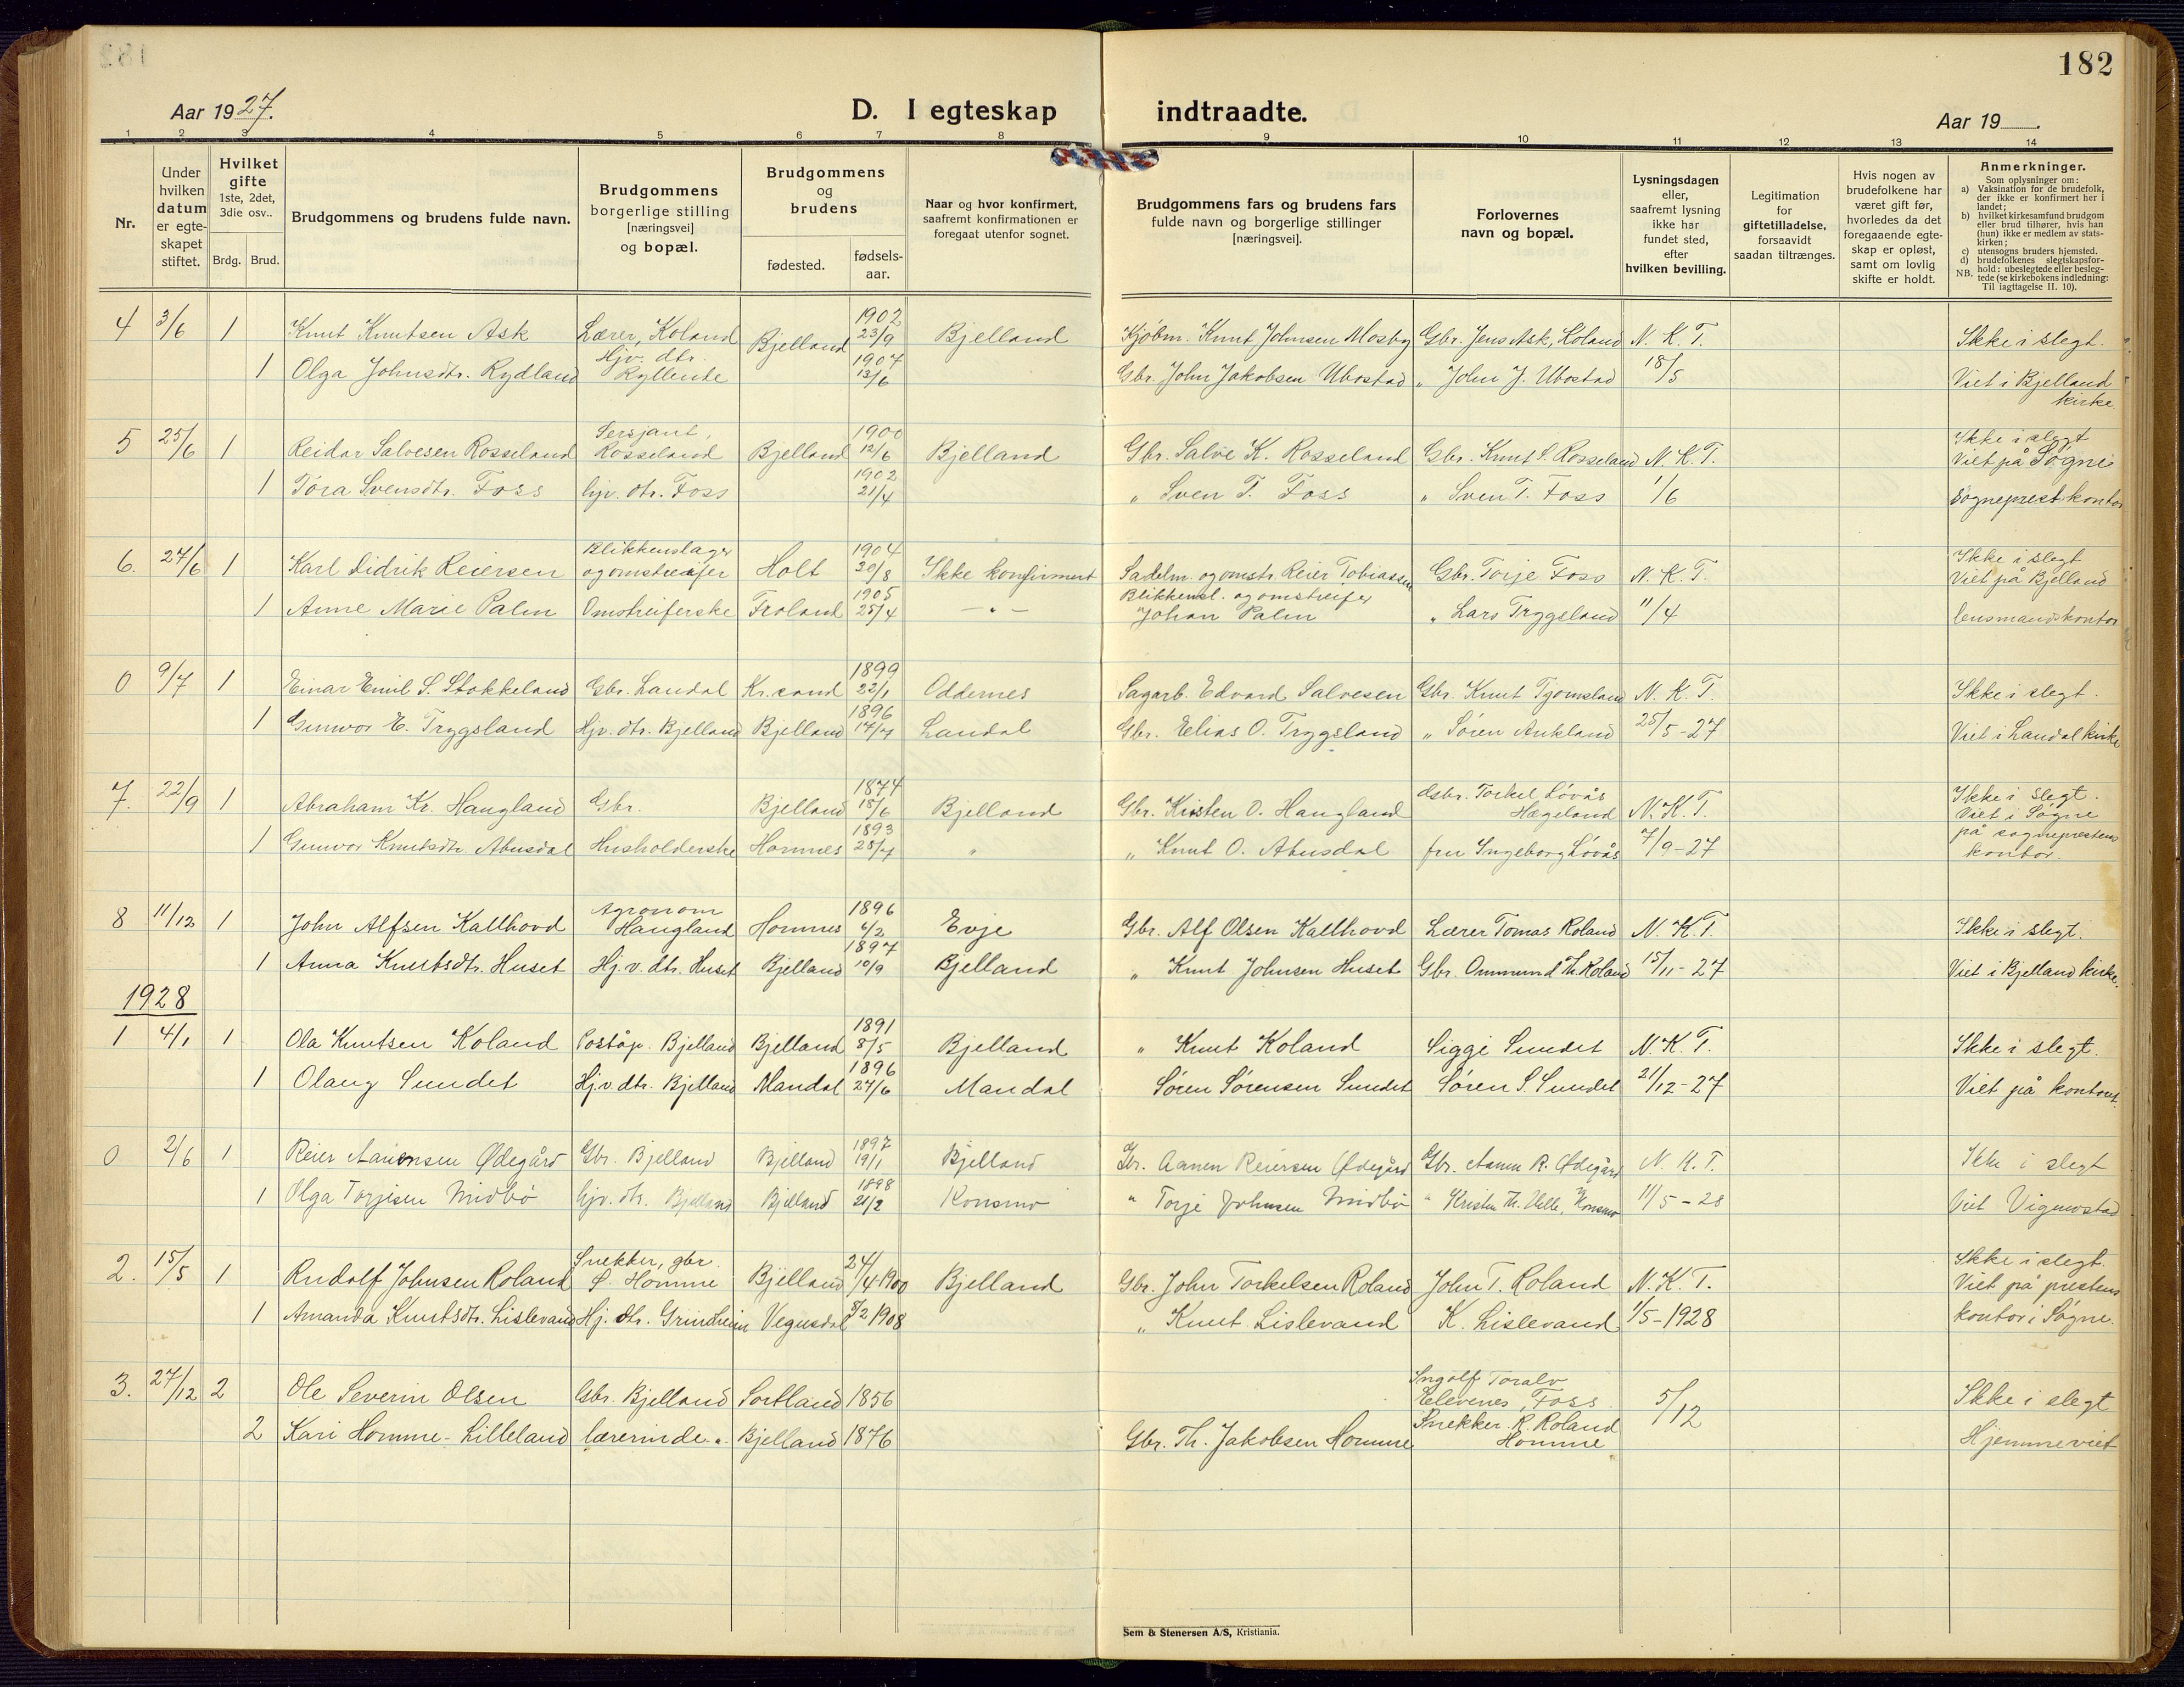 182
Aar 1927.
D. I egteskap indtraadte.
Aar 19
1 2 3 4 5 6 7 8 9 10 11 12 13 14
Nr.
Under hvilken datum er egte-skapet stiftet.
Hvilket gifte 1ste, 2det, 3die osv..
Brdg. Brud.
Brudgommens og brudens fulde navn.
Brudgommens borgerlige stilling [næringsvei] og bopæl.
Brudgommens og brudens
fødested. fødsels-aar.
Naar og hvor konfirmert, saafremt konfirmationen er foregaat utenfor sognet.
Brudgommens fars og brudens fars fulde navn og borgerlige stillinger [næringsvei].
Forlovernes navn og bopæl.
Lysningsdagen eller, saafremt lysning ikke har fundet sted, efter hvilken bevilling.
Legitimation for giftetilladelse, forsaavidt saadan tiltrænges.
Hvis nogen av brudefolkene har været gift før, hvorledes da det foregaaende egte-skap er opløst, samt om lovlig skifte er holdt.
Anmerkninger.
Som oplysninger om:
a) Vaksination for de brudefolk, der ikke er konfirmert her i landet;
b) hvilket kirkesamfund brudgom eller brud tilhører, hvis han (hun) ikke er medlem av stats-kirken;
c) utensogns bruders hjemsted.
d) brudefolkenes slegtskapsfor-hold: ubeslegtede eller besleg-tede (se kirkebokens indledning: Til iagttagelse II. 10).
NB.
4 3/6 1 Knut Knutsen Ask Lærer, Koland Bjelland 1902 23/9 Bjelland Kjøbm. Knut Johnsen Mosby Gbr. Jens Ask, Koland N. K. T. Ikke i slegt.
1 Olga Johnsdtr. Rydland Hjv. dtr. Kyllente 1907 12/6 Gbr. John Jakobsen Ubostad " John J. Ubostad 18/5 Viet i Bjelland kirke
5 25/6 1 Reidar Salvesen Rosseland Sersjant, Rosseland Bjelland 1900 12/6 Bjelland Gbr. Salve K. Rosseland Gbr. Knut S. Rosseland N. K. T. Ikke i slegt Viet på Søgne
1 Tora Svensdtr. Foss hjv. dtr. Foss 1902 21/4 " Sven T. Foss " Sven T. Foss 1/6 sogneprest kontor
6. 27/6 1 Karl Didrik Reiersen Blikkenslager og omstreifer Holt 1904 20/8 Ikke konfirmert Sadelm. og omstr. Reier Tobiassen Gbr. Torje Foss N. K. T. Ikke i slegt Viet på Bjelland
1 Anne Marie Palm Omstreiferske Froland 1905 25/4 — " — Blikkensl. og omstreifer Johan Palm " Lars Tryggsland 11/4 lensmandskontor
0 9/7 1 Einar Emil S. Stokkeland Gbr. Laudal Kr.sand 1899 22/1 Oddernes Sagarb. Edvard Salvesen Gbr. Knut Tjomsland N. K. T. Ikke i slegt.
1 Gunvor E. Trygsland Hjv. dtr. Bjelland Bjelland 1896 17/7 Laudal Gbr. Elias O. Trygsland " Søren Aukland 25/5-27 Viet i Laudal kirke
7. 22/9 1 Abraham Kr. Haugland Gbr. Bjelland 1874 15/6 Bjelland Gbr. Kristen O. Haugland Gbr. Torkel Løvås Hægeland N. K. T. Ikke i slegt. Viet i Søgne
1 Gunvor Knutsdtr. Abusdal Husholderske Hornnes 1893 28/7 " " Knut O. Abusdal fru Ingeborg Løvås 7/9-27 på sogneprestens kontor.
8 11/12 1 John Alfsen Kallhovd Agronom Haugland Hornnes 1896 6/2 Evje Gbr. Alf Olsen Kallhovd Lærer Tomas Roland N. K. T. Ikke i slegt.
1 Anna Knutsdtr. Huset Hj.v. dtr. Huset Bjelland 1897 10/9 Bjelland " Knut Johnsen Huset Gbr. Ommund Th. Roland 15/11-27 Viet i Bjelland kirke.
1928
1 4/1 1 Ola Knutsen Koland Poståp. Bjelland Bjelland 1891 8/5 Bjelland " Knut Koland Siggi Sundet N. K. T. Ikke i slegt.
1 Olaug Sundet Hj.v. dtr. Bjelland Mandal 1896 27/6 Mandal Søren Sørensen Sundet Søren S. Sundet 21/12-27 Viet på kontoret.
0 2/6 1 Reier Aanensen Ødegård Gbr. Bjelland Bjelland 1897 19/1 Bjelland Gbr. Aanen Reiersen Ødegård Gbr. Aanen R. Ødegård N. K. T. Ikke i slegt
1 Olga Torjisen Midbø hjv. dtr. Bjelland Bjelland 1898 21/2 Konsmo " Torje Johnsen Midbø " Kristen Th. Helle, Konsmo 11/5-28 Viet Vigmostad
2. 15/5 1 Rudolf Johnsen Roland Snekker, gbr. Ø. Homme Bjelland 24/4 1900 Bjelland Gbr. John Torkelsen Roland John T. Roland N. K. T. Ikke i slegt. Viet på prestens
1 Amanda Knutsdtr. Lislevand Hj. dtr. Grindheim Vegusdal 8/2 1908 " Knut Lislevand K. Lislevand 1/5-1928 kontor i Søgne.
3. 27/12 2 Ole Severin Olsen Gbr. Bjelland Sortland 1856 Ingolf Toralv Elevenes, Foss 5/12 Ikke i slegt
2 Kari Homme-Lilleland lærerinde " Bjelland 1876 Gbr. Th. Jakobsen Homme Snekker R. Roland Homme Hjemmeviet
Sem & Stenersen A/S, Kristiania.